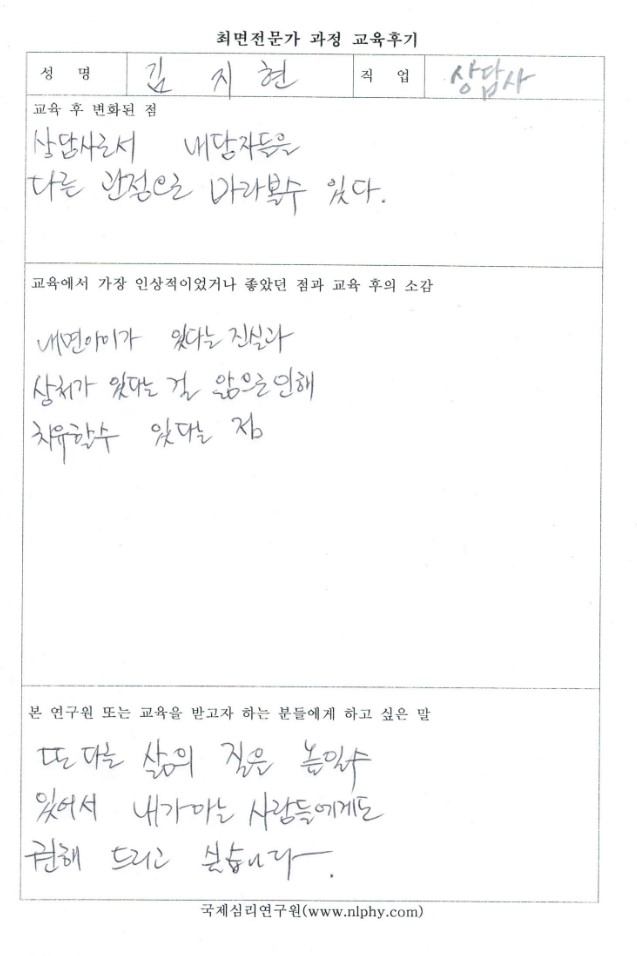 최면전문가 과정 교육후기
성 명 김 지 현 직 업 상담사
교육 후 변화된 점
상담사로서 내담자들을
다른 관점으로 바라볼수 있다.
교육에서 가장 인상적이었거나 좋았던 점과 교육 후의 소감
내면아이가 있다는 진실과
상처가 있다는 걸 앎으로 인해
치유할수 있다는 점
본 연구원 또는 교육을 받고자 하는 분들에게 하고 싶은 말
또 다른 삶의 질은 높일수
있어서 내가아는 사람들에게도
권해 드리고 싶습니다.
국제심리연구원(www.nlphy.com)